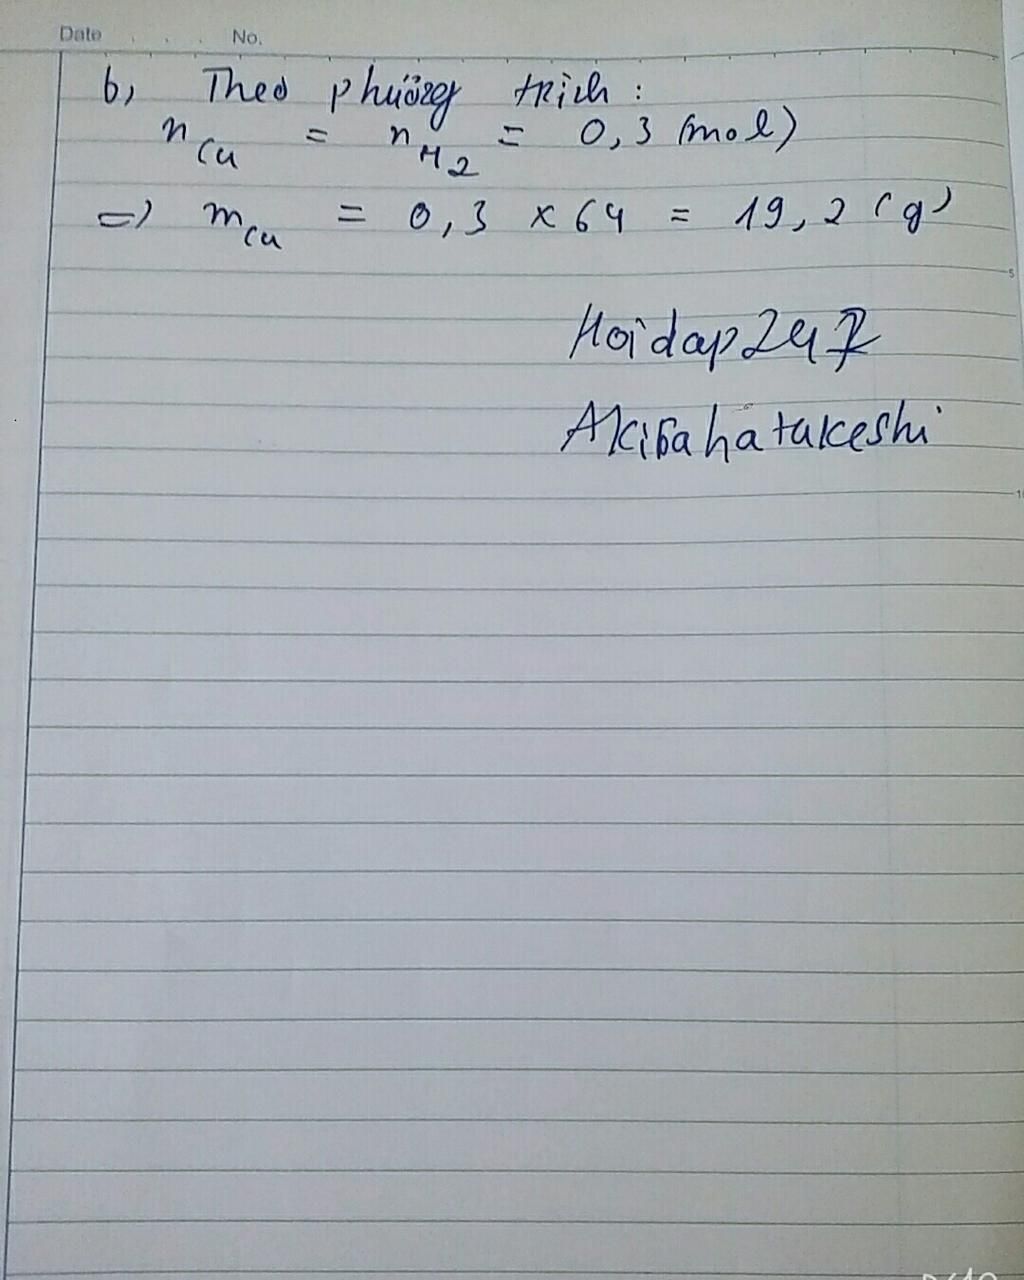 Date No.
b, Theo phương trình :
n Cu = n H2 = 0,3 (mol)
=> m Cu = 0,3 x 64 = 19,2 (g)
5
Hoidap247
Akibahatakeshi
10